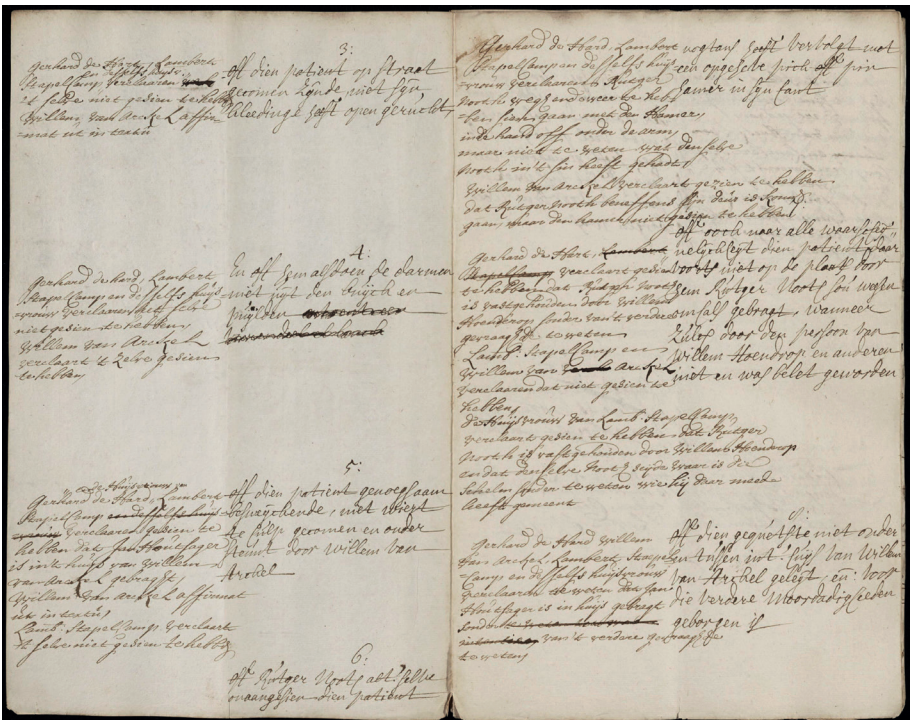 3:
Gerhard de Hard, Lambert
Stapelcamp verclaaren
't selve niet gesien te hebben
Willem van Arckel affir
mat ut in textu
off dien patient op straat
gecomen zijnde niet sijn
bleedinge heeft open geruckt,
4:
Gerhard de hard, Lambert
Stapelcamp en desselfs huijs
vrouw verclaaren 't selve
niet gesien te hebben,
Willem van Arckel
verclaart 't zelve gesien
te hebben
En off hem alldoen de darmen
niet uijt den buijck en
puijlden
5:
Gerhard de Hard, Lambert
Stapelcamp en desselfs huijs
verclaaren gesien te
hebben dat Jan Houtsager
is in't huijs van Willem
van Arckel gebragt,
Willem van Arckel affirmat
ut in textu,
Lamb. Stapelcamp verclaart
't selve niet gesien te hebben
off dien patient genoeghsaam
beswijckende, niet wiert
te hulp gecomen en onder
steunt door Willem van
Arckel
6:
off Rutger Noots alt selve
onaangesien dien patient
Gerhard de Hard, Lambert
Stapelcamp en desselfs huijs
vrouw verclaaren Rutger
Nooth weg en weer te heb
ben sien gaan met den Hamer,
in de hand off onder de arm,
maar niet te weten wat denselve
Nooth in't sin heeft gehadt,
Willem van Arckel verclaart gezien te hebben
dat Rutger Noth beneffens sijn deur is
gaan, maar den hamer niet gesien te hebben
nogtans heeft vervolgt met
een opgeheve prick off
hamer in sijn hant
Gerhard de Hart, Lambert
Stapelcamp verclaart gesien
te hebben dat Rutger Noots
is vastgehouden door Willem
Hoendrop sonder van't verdere
gevraagde te weten
Lamb. Stapelcamp en
Willem van Arckel
verclaaren dat niet gesien te
hebben,
de Huijsvrouw van Lamb. Stapelcamp,
verclaart gesien te hebben dat Rutger
Nooth is vastgehouden door Willem Hoendrop
en dat denselve Noot seijde waar is die
Schelm sonder te weten wie hij daar mede
heeft gemeent
off ooch naar alle waarschij
nelijckheijt dien patient daar
voorts niet op de plaats door
hem Rutger Noots sou wesen
omhals gebragt, wanneer
zulcx door den persoon van
Willem Hoendrop en anderen
niet en was belet geworden
8:
Gerhard de Hard Willem
van Arckel, Lambert Stapel
camp en desselfs huijsvrouw
verclaaren te weten dat Jan
Houtsager is in huijs gebragt
sonder
van't verdere gevraegde
te weten
off dien gequetste niet onder
en tussen in't huijs van Willem
van Arckel gelegt, en voor
die verdere moordadigheden
geborgen is